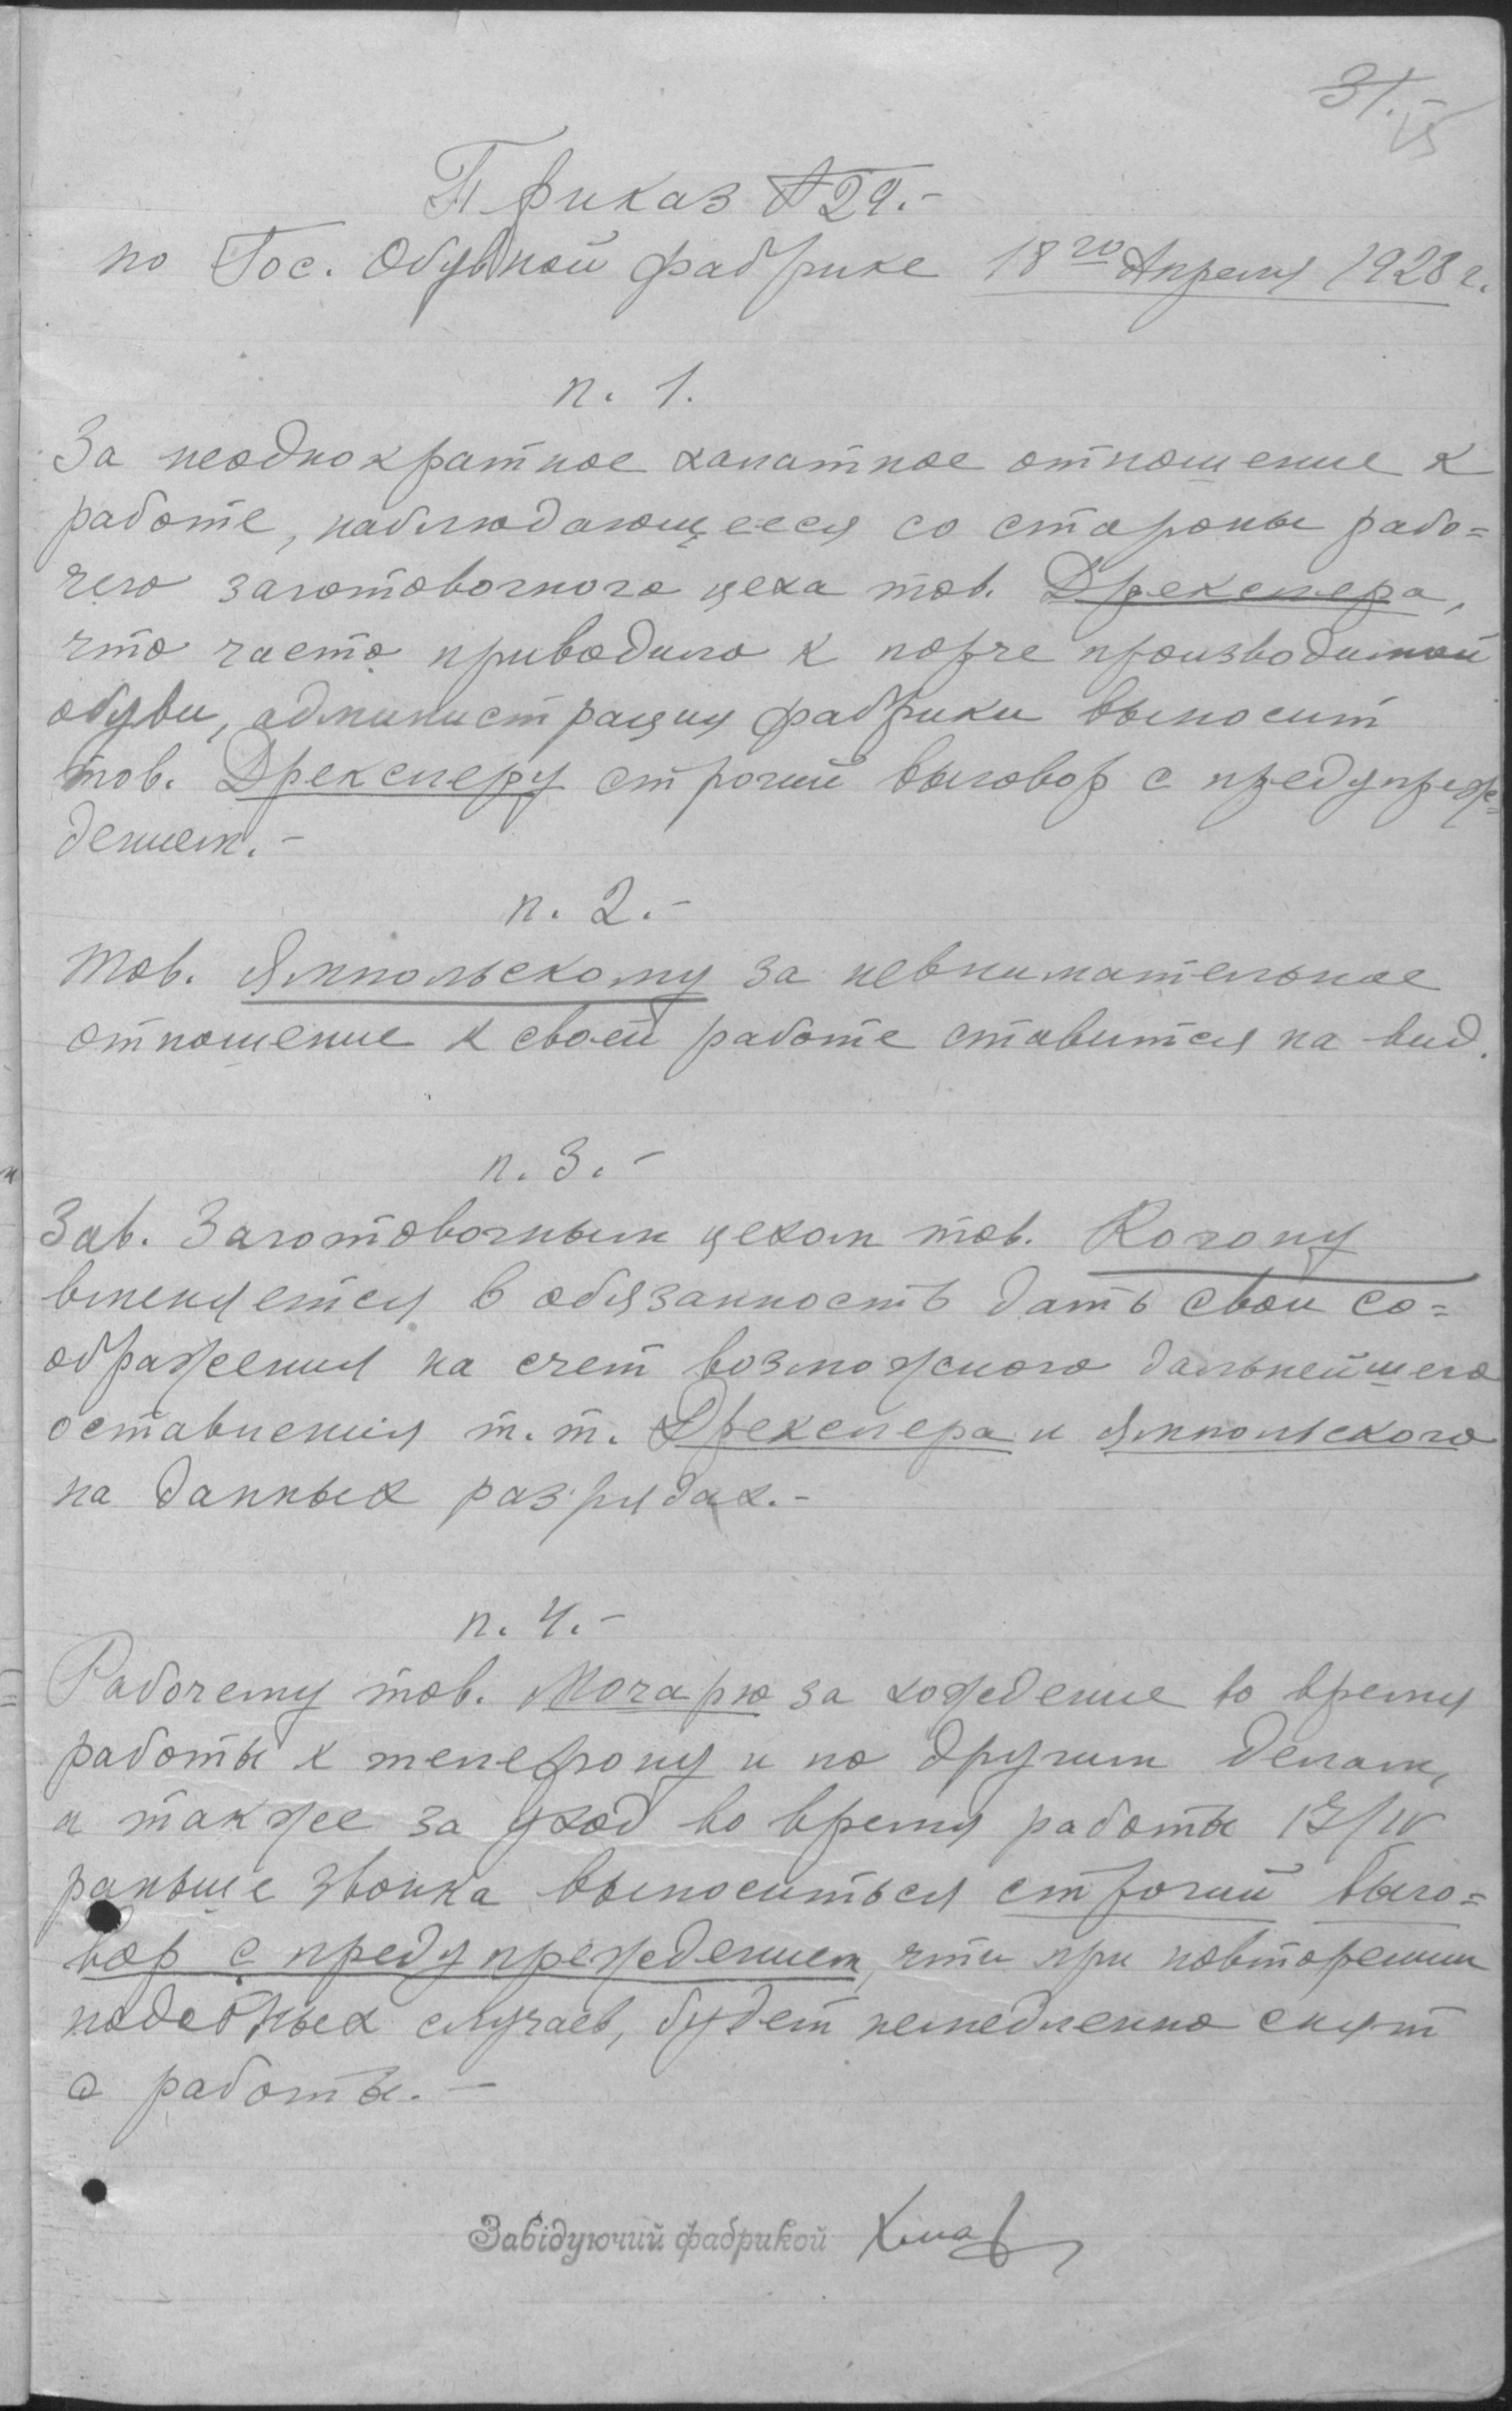 31.
Приказ №29.-
по Гос. Обувной фабрике 18го Апреля 1928 г.
п. 1.
За неоднократное халатное отношение к
работе, наблюдающееся со стороны рабо=
чего заготовочного цеха тов. Дрекслера,
что часто приводило к порче производимой
обуви, администрация фабрики выносит
тов. Дрекслеру строгий выговор с предупреж=
дением.-
п. 2.-
Тов. Ямпольскому за невнимательное
отношение к своей работе ставится на вид.
п. 3.-
Зав. Заготовочным цехом тов. Когону
вменяется в обязанность дать свои со=
ображения на счет возможного дальнейшего
оставления т.т. Дрекслера и Ямпольского
на данных разрядах.-
п. 4.-
Рабочему тов. Мочарю за хождение во время
работы к телефону и по другим делам,
а также за уход во время работы 17/IV
раньше звонка выноситься строгий выго=
вор с предупреждением, что при повторении
подобных случаев, будет немедленно снят
с работы.-
Завідуючий фабрикой